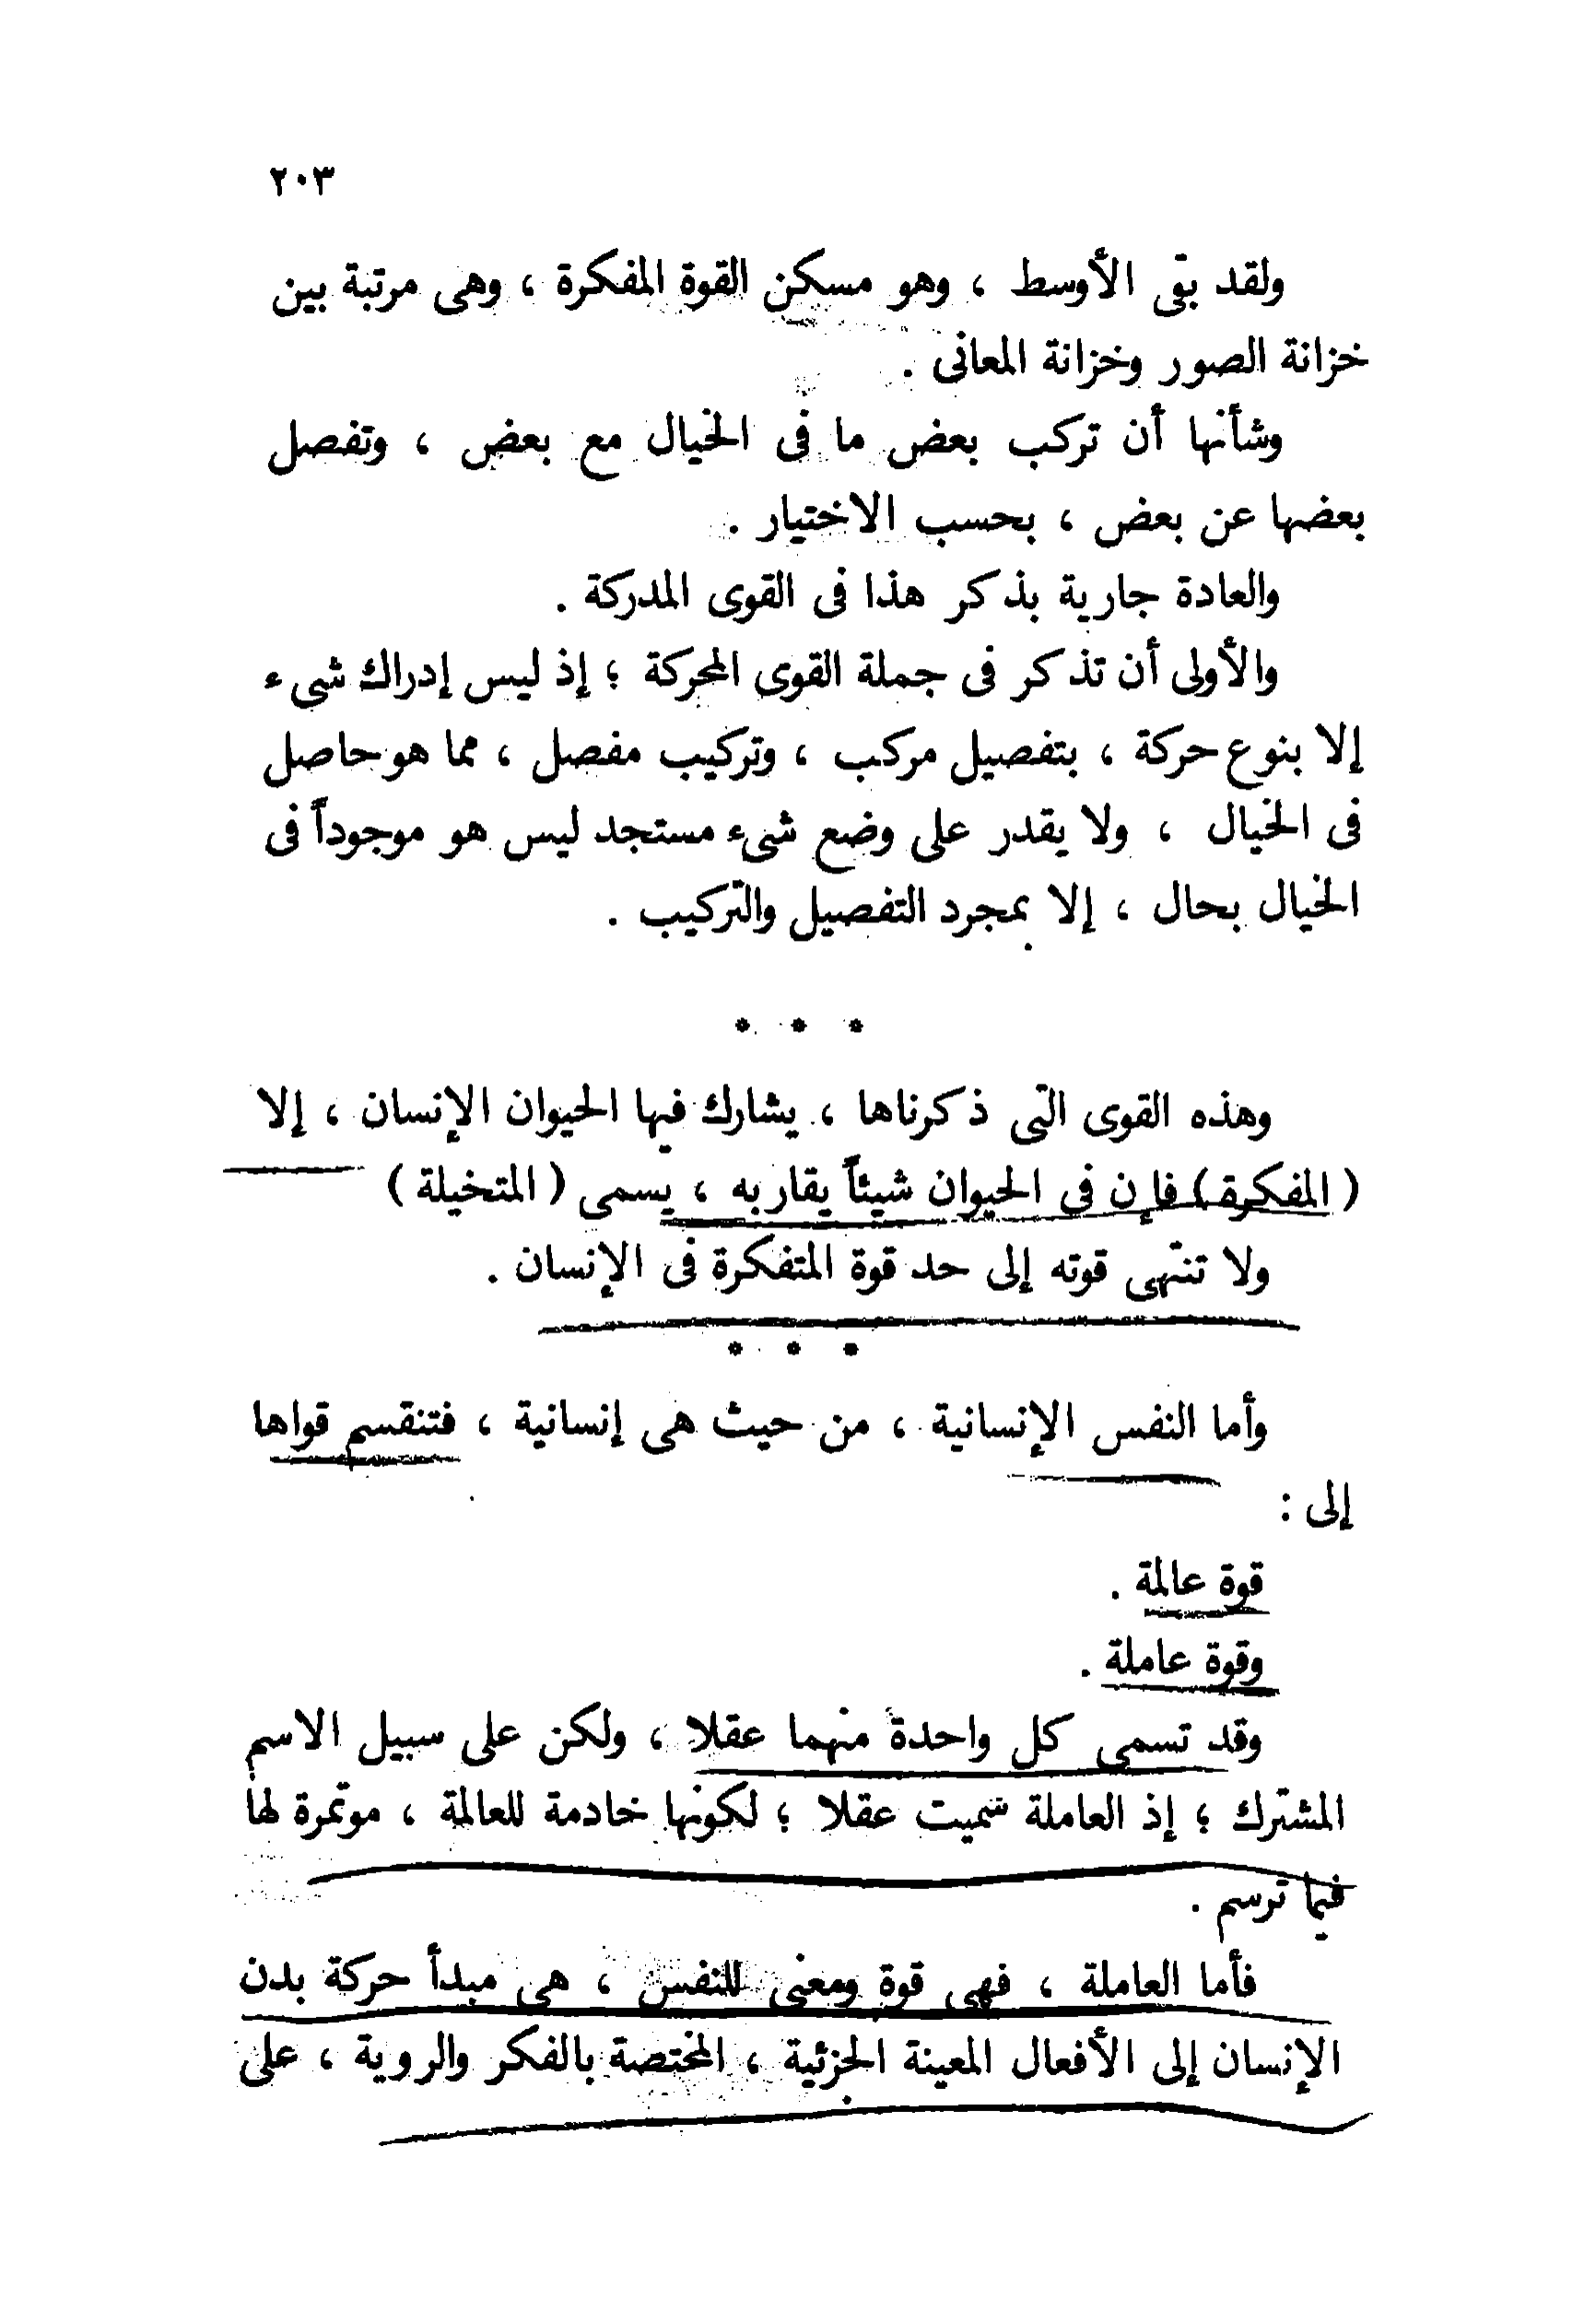 ٢٠٣
ولقد بقى الأوسط ، وهو مسكن القوة المفكرة ، وهى مرتبة بين
خزانة الصور وخزانة المعانى .
وشأنها أن تركب بعض ما فى الخيال مع بعض ، وتفصل
بعضها عن بعض ، بحسب الاختيار .
والعادة جارية بذكر هذا فى القوى المدركة .
والأولى أن تذكر فى جملة القوى المحركة ؛ إذ ليس إدراك شىء
إلا بنوع حركة ، بتفصيل مركب ، وتركيب مفصل ، مما هو حاصل
فى الخيال ، ولا يقدر على وضع شىء مستجد ليس هو موجوداً فى
الخيال بحال ، إلا بمجرد التفصيل والتركيب .
* * *
وهذه القوى التى ذكرناها ، يشارك فيها الحيوان الإنسان ، إلا
( المفكرة ) فإن فى الحيوان شيئاً يقاربه ، يسمى ( المتخيلة )
ولا تنتهى قوته إلى حد قوة المتفكرة فى الإنسان .
* * *
وأما النفس الإنسانية ، من حيث هى إنسانية ، فتنقسم قواها
إلى :
قوة عالمة .
وقوة عاملة .
وقد تسمى كل واحدة منهما عقلا ، ولكن على سبيل الاسم
المشترك ؛ إذ العاملة سميت عقلا ؛ لكونها خادمة للعالمة ، موتمرة لها
فيما ترسم .
فأما العاملة ، فهى قوة ومعنى للنفس ، هى مبدأ حركة بدن
الإنسان إلى الأفعال المعينة الجزئية ، المختصة بالفكر والروية ، على